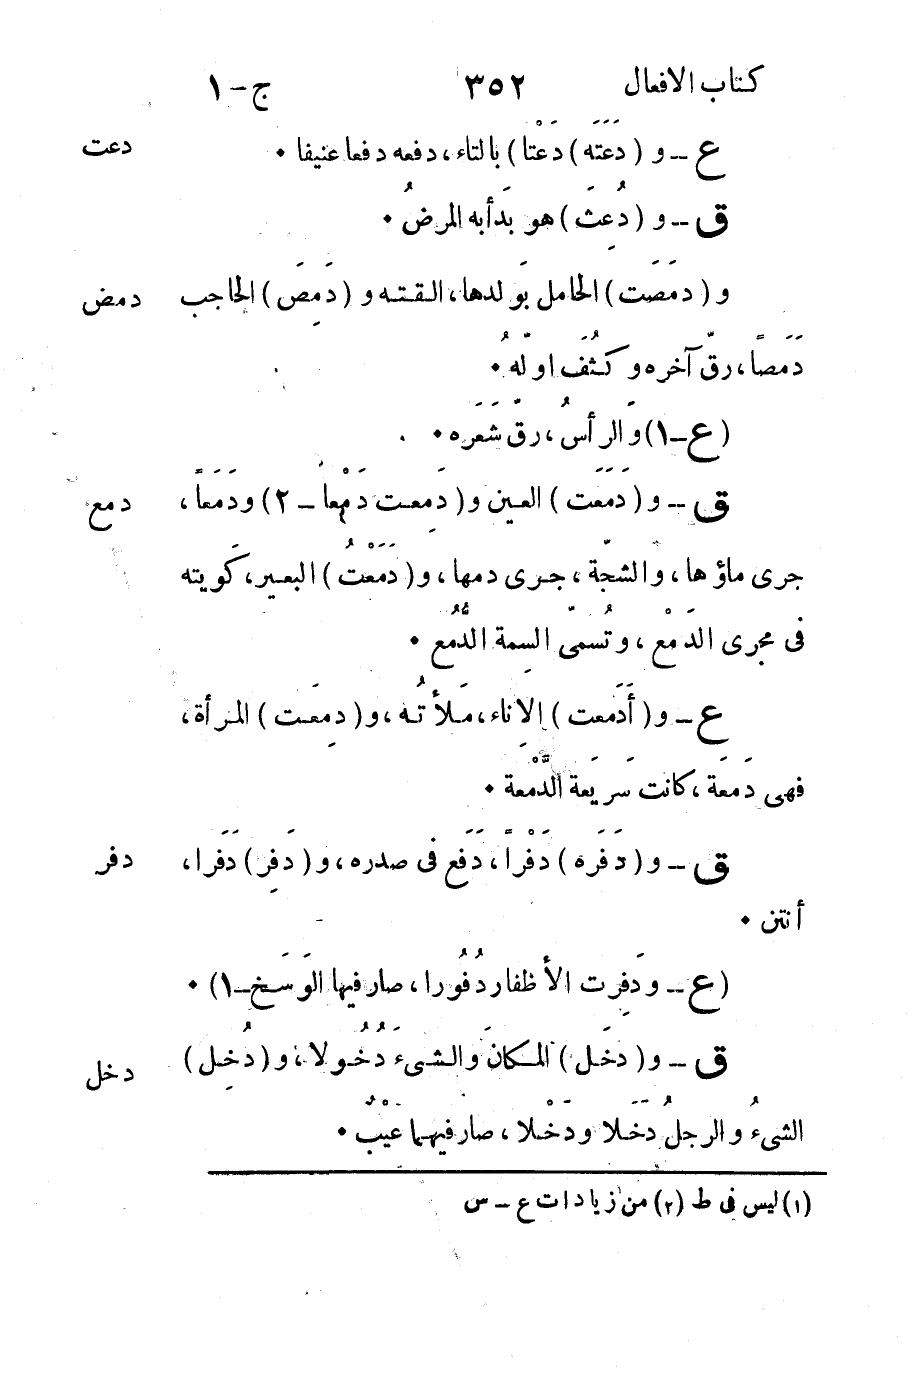 كتاب الافعال ٣٥٢ ج - ١
ع - و ( دَعَتَه ) دَعْتا ) بالتاء ، دفعه دفعا عنيفا • دعت
ق - و ( دُعِثَ ) هو بَدأبه المرضُ •
و ( دمَصَت ) الحامل بوَلدها ، القته و ( دَمِصَ ) الحاجب دمض
دَمَصاً ، رقّ آخره وكثُفَ اوّلهُ •
( ع - ١ ) وَالرأسُ ، رقّ شَعَره •
ق - و ( دَمَعَت ) العين و ( دَمِعت دَمْعا - ٢ ) ودَمَعاً ، دمع
جرى ماؤها ، والشجّة ، جرى دمها ، و ( دَمَعْتُ ) البعير ، كَويته
فى مجرى الدَمْع ، وتُسمّى السِمة الدُّمُع •
ع - و ( أَدمَعت ) الاِناء ، مَلأتُه ، و ( دمِعَت ) المرأة ،
فهى دَمِعَة ، كانت سَرِيعَة الدَّمْعة •
ق - و ( دَفَرَه ) دَفْراً ، دَفَع فى صدره ، و ( دَفِر ) دَفَرا ، دفر
أنتن •
( ع - ودَفِرت الأظفار دُفُورا ، صار فيها الوَسَخ - ١ ) •
ق - و ( دخَل ) المكانَ والشىءَ دُخُولا ، و ( دُخِل ) دخل
الشىءُ والرجلُ دَخَلا ودَخْلا ، صار فيهما عَيْبٌ •
(١) ليس فى ط (٢) من زيادات ع - س